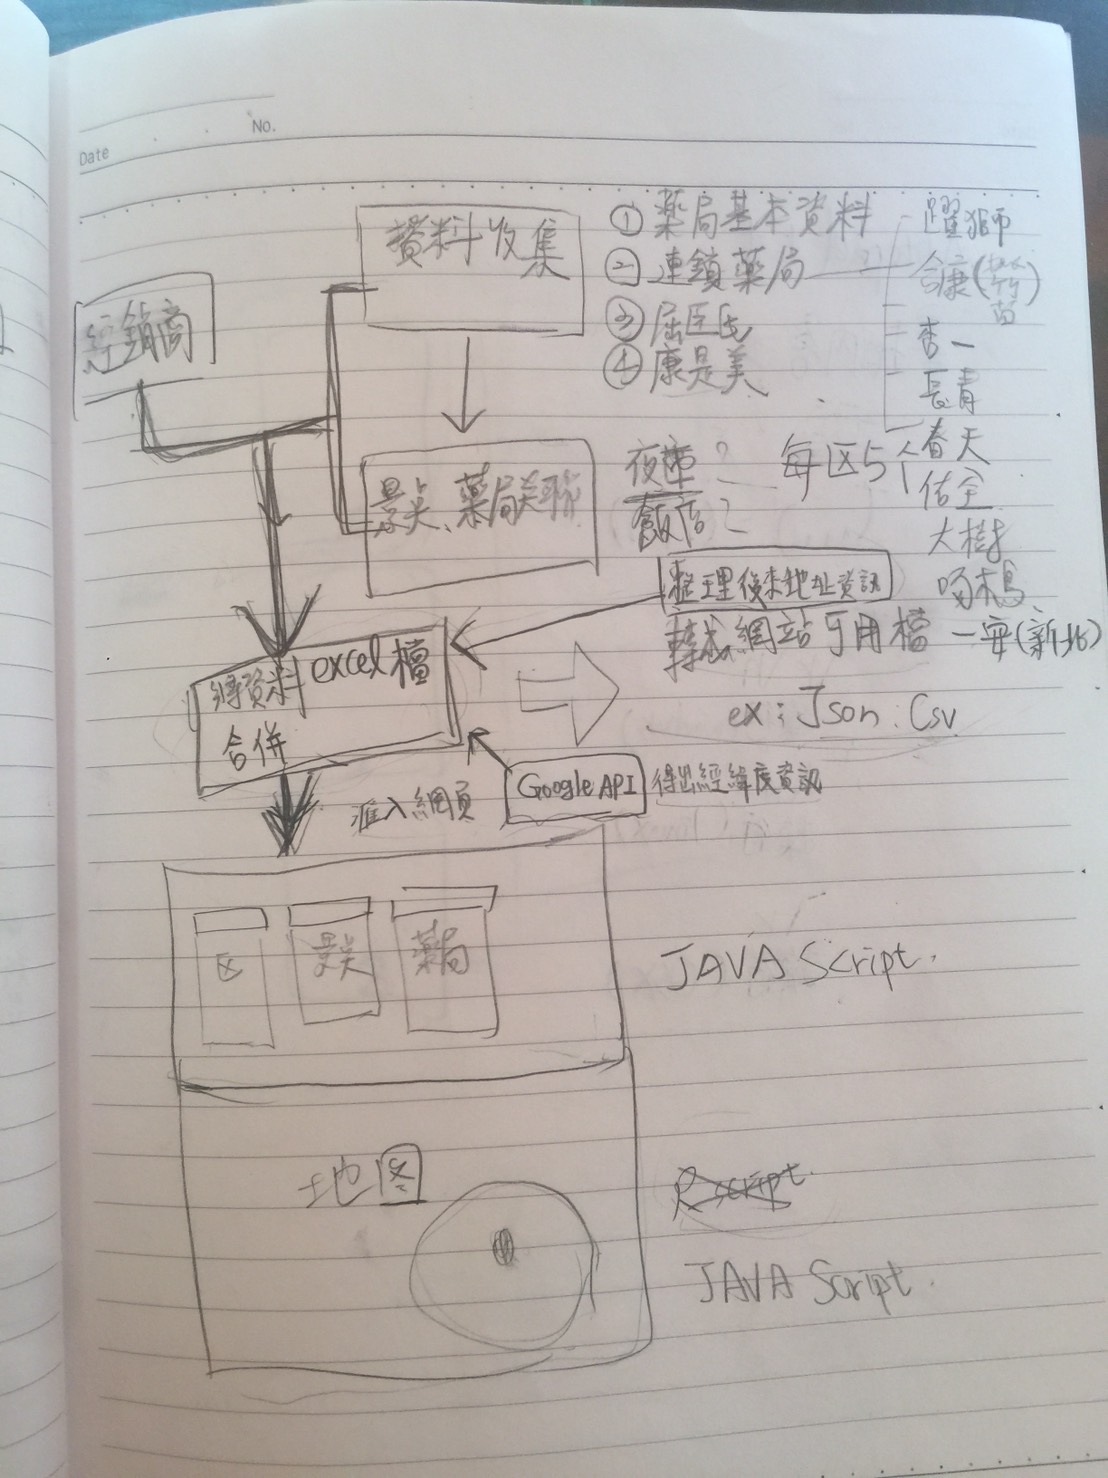 No.
Date
資料收集
經銷商
① 藥局基本資料
② 連鎖藥局
③ 屈臣氏
④ 康是美
躍獅
合康(
杏一
長青
春天
佑全
大樹
啄木鳥
一安(新北)
景点、藥局关聯
夜市?
飯店?
每区5个
整理後來地址資訊
轉成網站可用檔
ex:Json.Csv
將資料
合併
excel檔
Google API
得出經緯度資訊
匯入網頁
区
景点
藥局
JAVA Script.
地图
R script.
JAVA Script.